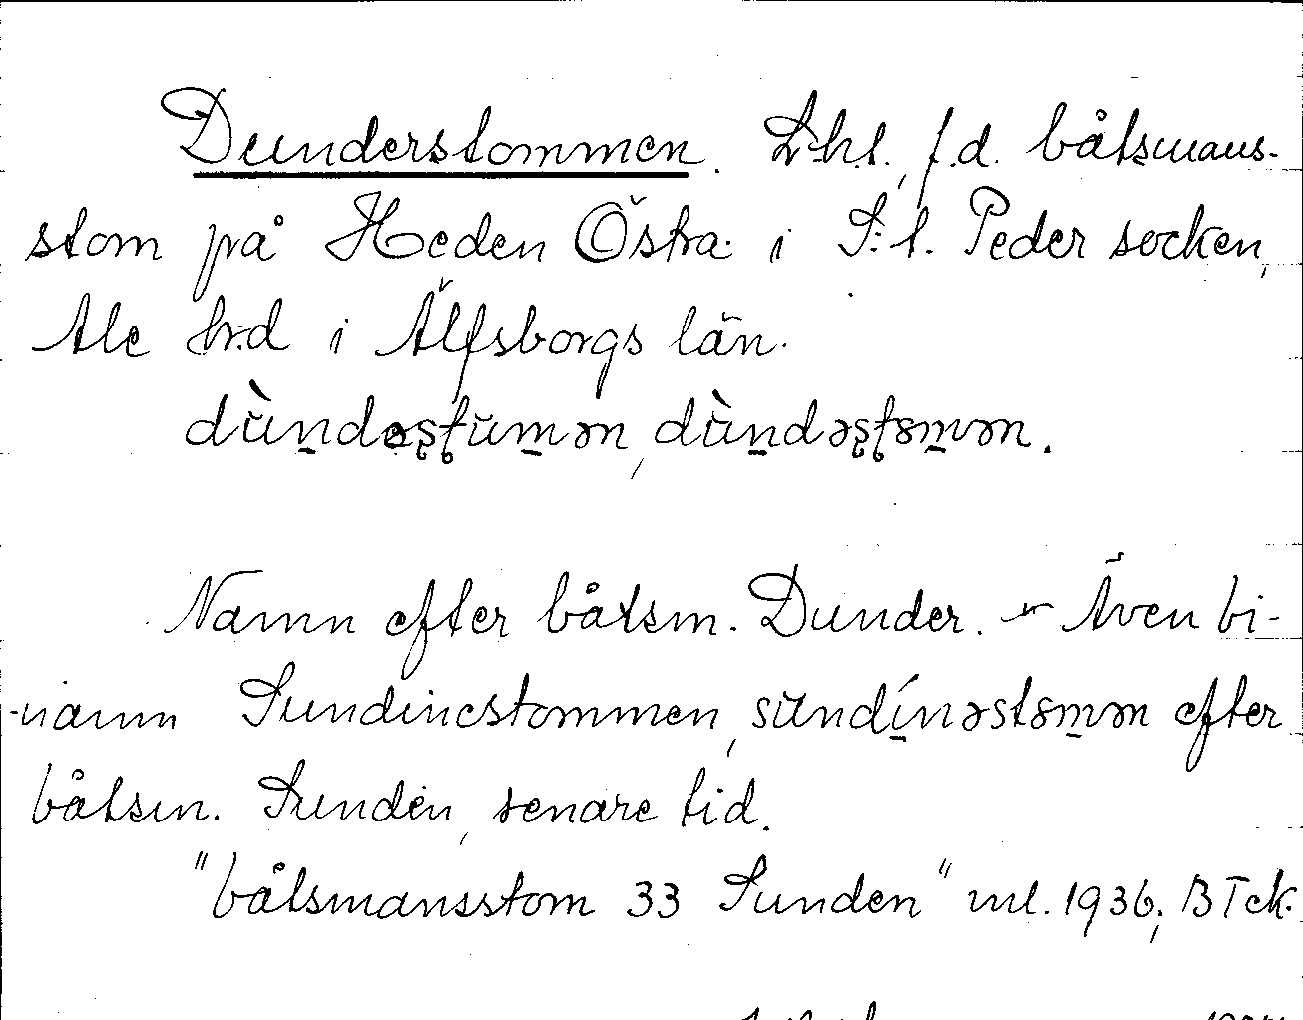 Dunderstommen. L:h.t., f.d. båtsmans-
stom på Heden Östra i S:t. Peder socken,
Ale hrd i Älfsborgs län.
dùndəstumən, dùndəstomən.
Namn efter båtsm. Dunder. – Även bi-
-namn Sundinestommen, sundínəstomən efter
båtsm. Sundén, senare tid.
"båtsmansstom 33 Sunden" ml. 1936; B Tck.